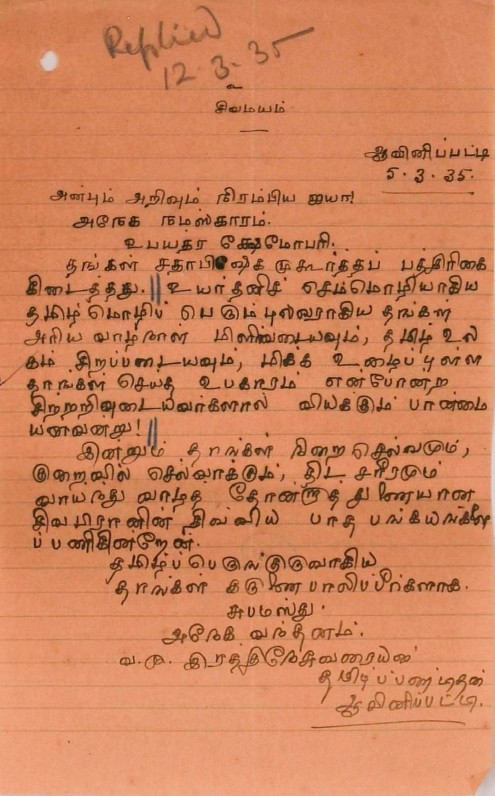 Replied
12-3-35
உ
சிவமயம்
ஆவினிப்பட்டி
5.3.35.
அன்பும் அறிவும் நிரம்பிய ஐயா!
அநேக நமஸ்காரம்.
உபயத்ர க்ஷேமோபரி.
தங்கள் சதாபிஷேக முகூர்த்தப் பத்திரிகை
கிடைத்தது. உயர்தனிச் செம்மொழியாகிய
தமிழ் மொழிப் பெரும்புலவராகிய தங்கள்
அரிய வாழ்நாள் மிளிவடையவும், தமிழ் உல
கம் சிறப்படையவும், மிகக் உழைப்புள்ள
தாங்கள் செய்த உபகாரம் என்போன்ற
சிற்றறிவுடையவர்களால் வியக்கும் பான்மை
யனவன்று!
இன்னும் தாங்கள் நிறை செல்வமும்,
குறைவில் செல்வாக்கும், திட சரீரமும்
வாய்ந்து வாழத் தோன்றாத் துணையான
சிவபிரானின் திவ்விய பாத பங்கயங்களைப்
ப்பணிகின்றேன்.
தமிழ்ப் பெருங்குருவாகிய
தாங்கள் கருணைபாலிப்பீர்களாக.
சுபமஸ்து.
அநேக வந்தனம்.
வ.மு. இரத்திநேசுவரையன்
தமிழ்ப்பண்டிதன்
ஆவினிப்பட்டி.